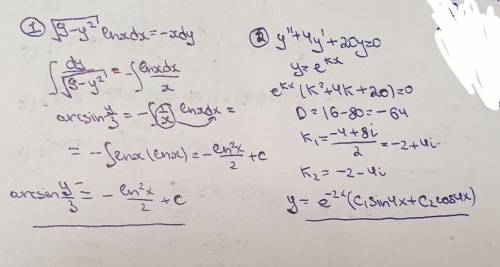 ① √(9-y²) lnxdx = -xdy
∫ dy/√(9-y²) = -∫ lnxdx/x
arcsin y/3 = -∫ (1/x) lnxdx =
= -∫ lnx(lnx) = -ln²x/2 + c
arcsin y/3 = -ln²x/2 + c
② y''+4y'+20y=0
y=e^(kx)
e^(kx) (k²+4k+20)=0
D=16-80=-64
k₁ = (-4+8i)/2 = -2+4i
k₂ = -2-4i
y= e^(-2x) (C₁sin4x+C₂cos4x)